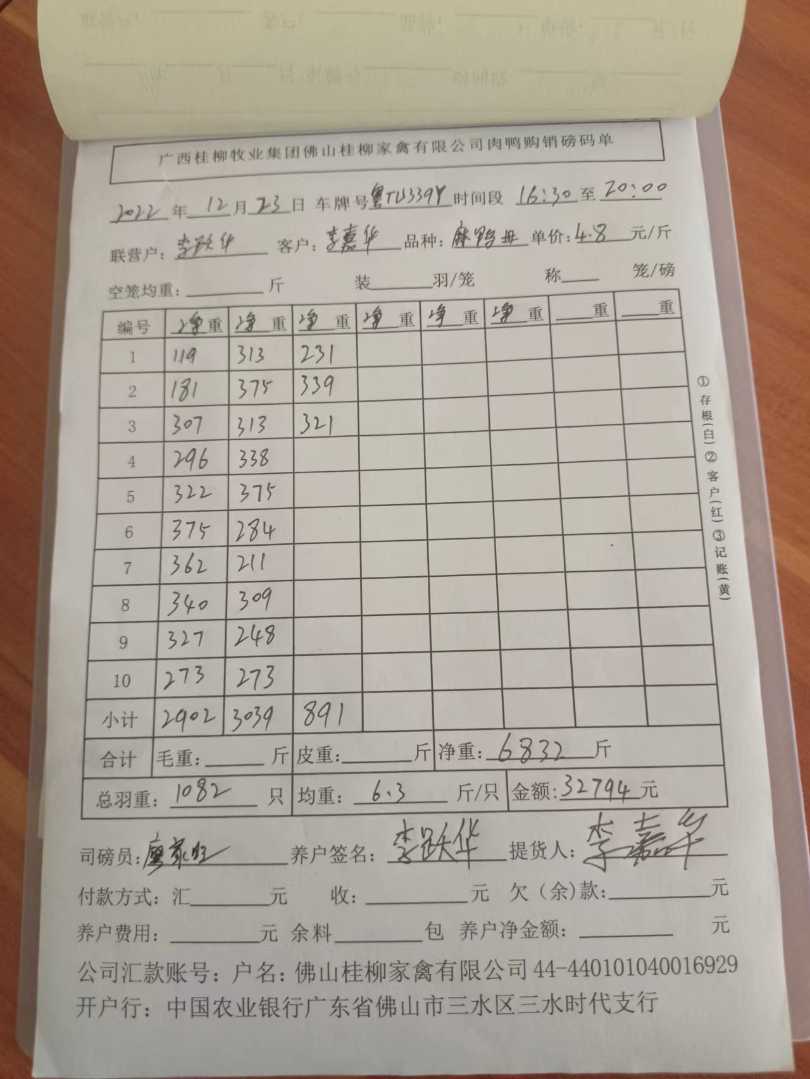 广西桂柳牧业集团佛山桂柳家禽有限公司肉鸭购销磅码单
2022 年 12 月 23 日 车牌号 粤TU339Y 时间段 16:30 至 20:00
联营户: 李跃华 客户: 李嘉华 品种: 麻鸭母 单价: 4.8 元/斤
空笼均重: 斤 装 羽/笼 称 笼/磅
编号 净重 净重 净重 净重 净重 净重 重 重
1 119 313 231
2 181 375 339
3 307 313 321
4 296 338
5 322 375
6 375 284
7 362 211
8 340 309
9 327 248
10 273 273
小计 2902 3039 891
合计 毛重: 斤 皮重: 斤 净重: 6832 斤
总羽重: 1082 只 均重: 6.3 斤/只 金额: 32794 元
司磅员: 养户签名: 李跃华 提货人: 李嘉华
付款方式: 汇 元 收: 元 欠(余)款: 元
养户费用: 元 余料 包 养户净金额: 元
公司汇款账号: 户名: 佛山桂柳家禽有限公司 44-440101040016929
开户行: 中国农业银行广东省佛山市三水区三水时代支行
①存根(白)②客户(红)③记账(黄)